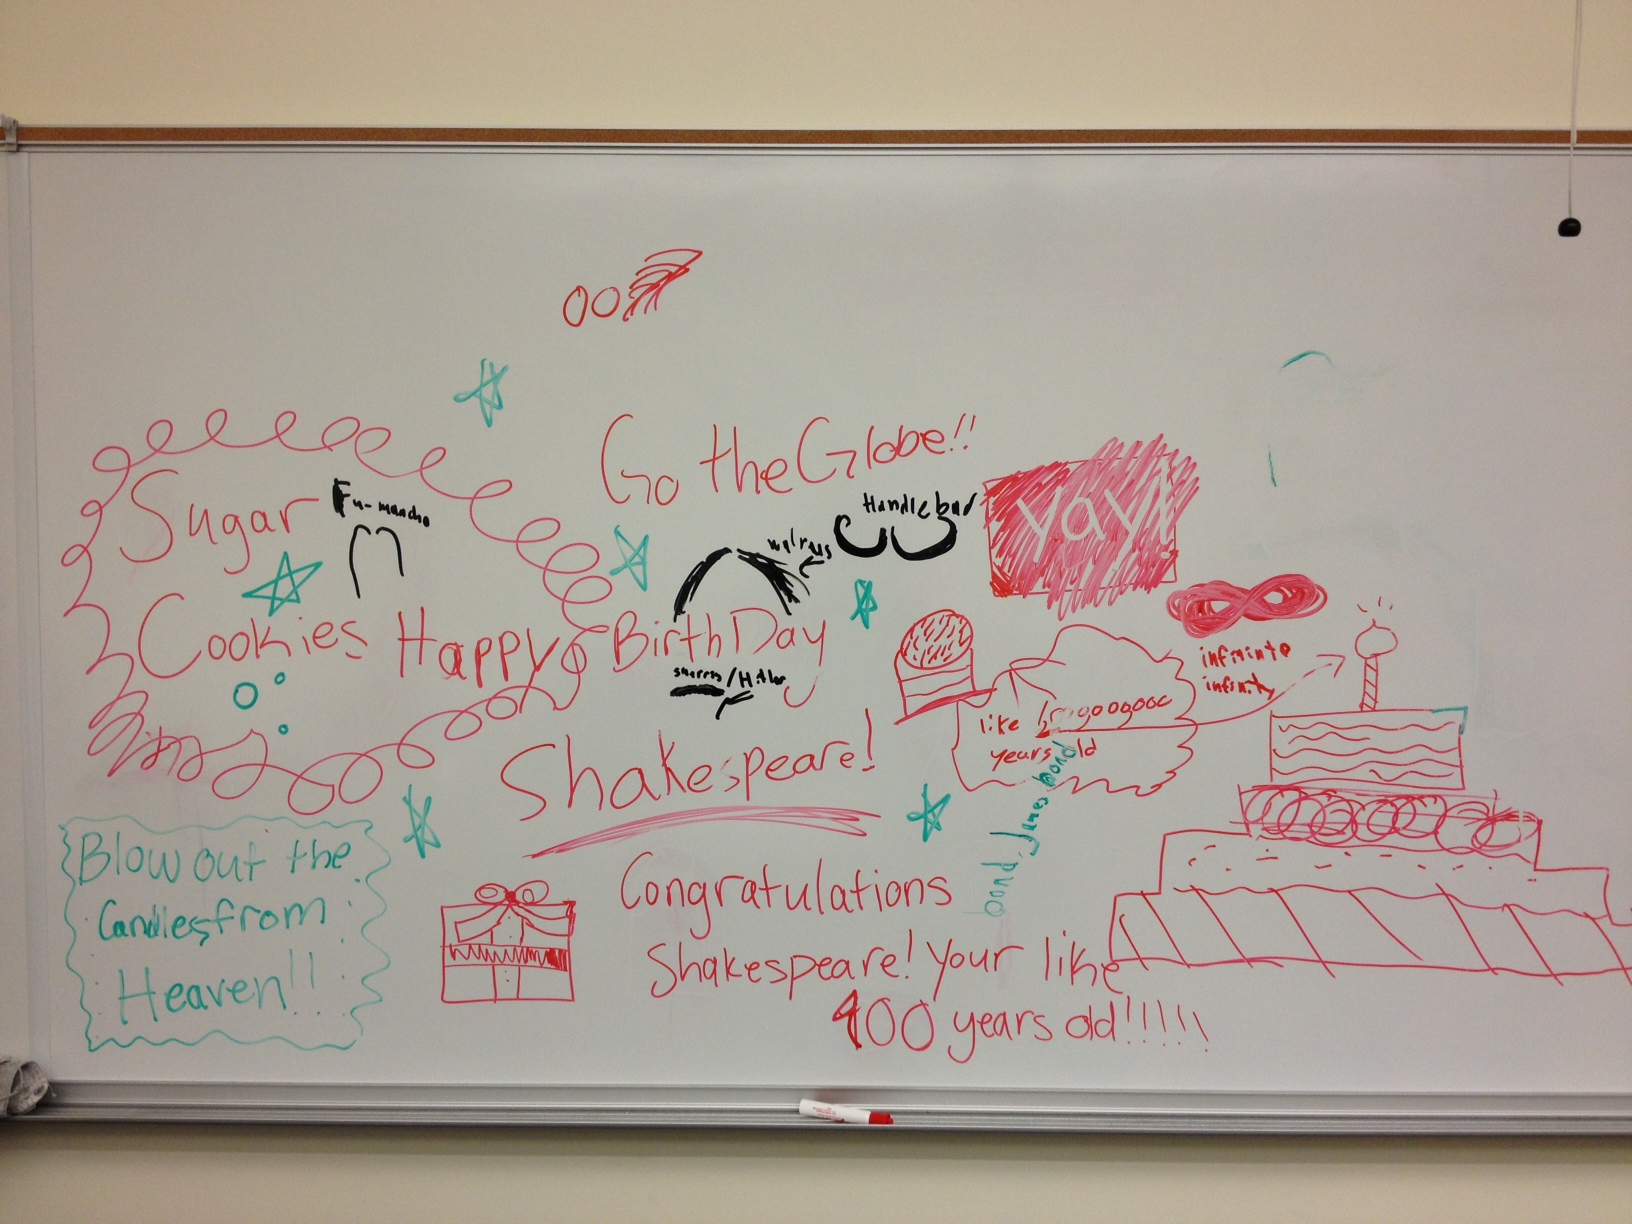 00
Go the Globe!!
Sugar
Fu-mancho
Handlebar
walrus
yay!
Cookies
Happy BirthDay
infininte
infinity
like
years old
Shakespeare!
bond, James bond
Blow out the
Candles from
Heaven!!
Congratulations
Shakespeare! Your like
400 years old!!!!!!